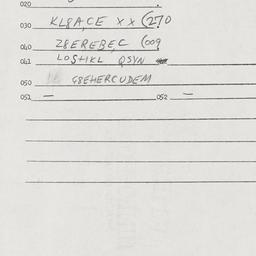 020
030 KL8ACE XX (270
040 Z8EREBEC (009
041 LOSTIKL QSYN
050 G8EHERCUDEM
051 — 052 —